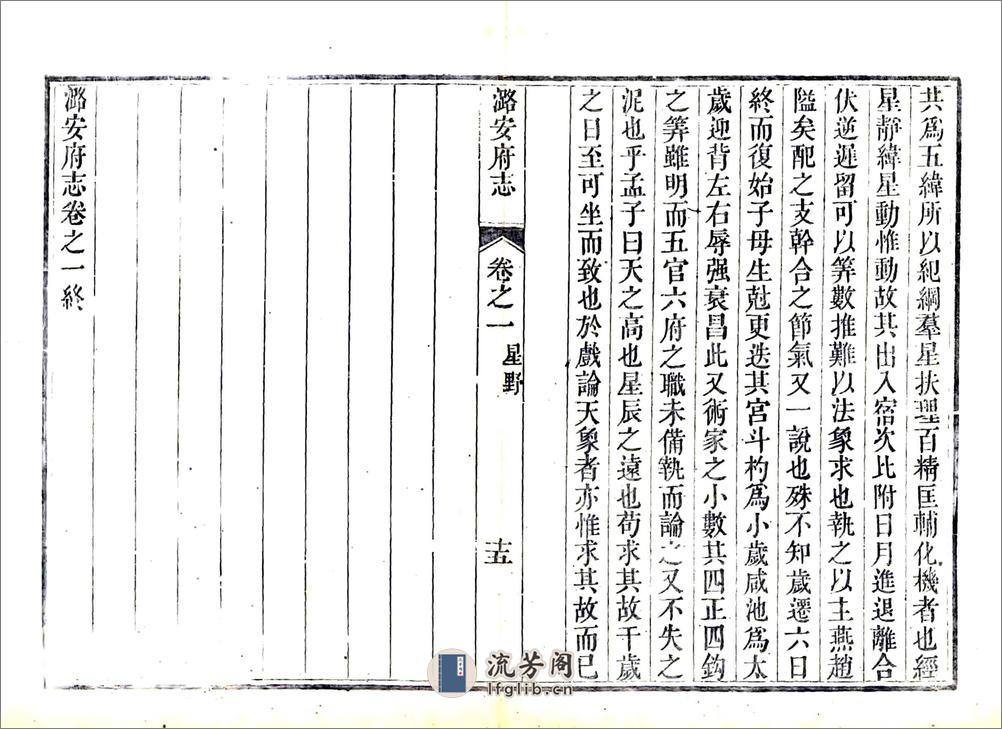 共爲五緯所以紀綱羣星扶理百精匡輔化機者也經
星靜緯星動惟動故其出入宿次比附日月進退離合
伏逆遲留可以筭數推難以法象求也執之以主燕趙
隘矣配之支幹合之節氣又一說也殊不知歲遷六日
終而復始子母生尅更迭其宮斗杓爲小歲咸池爲太
歲迎背左右辱强衰昌此又術家之小數其四正四鈎
之筭雖明而五官六府之職未備執而論之又不失之
泥也乎孟子曰天之高也星辰之遠也苟求其故千歲
之日至可坐而致也於戲論天象者亦惟求其故而已
潞安府志
卷之一
星野
十五
潞安府志卷之一終
流芳阁
lfglib.cn